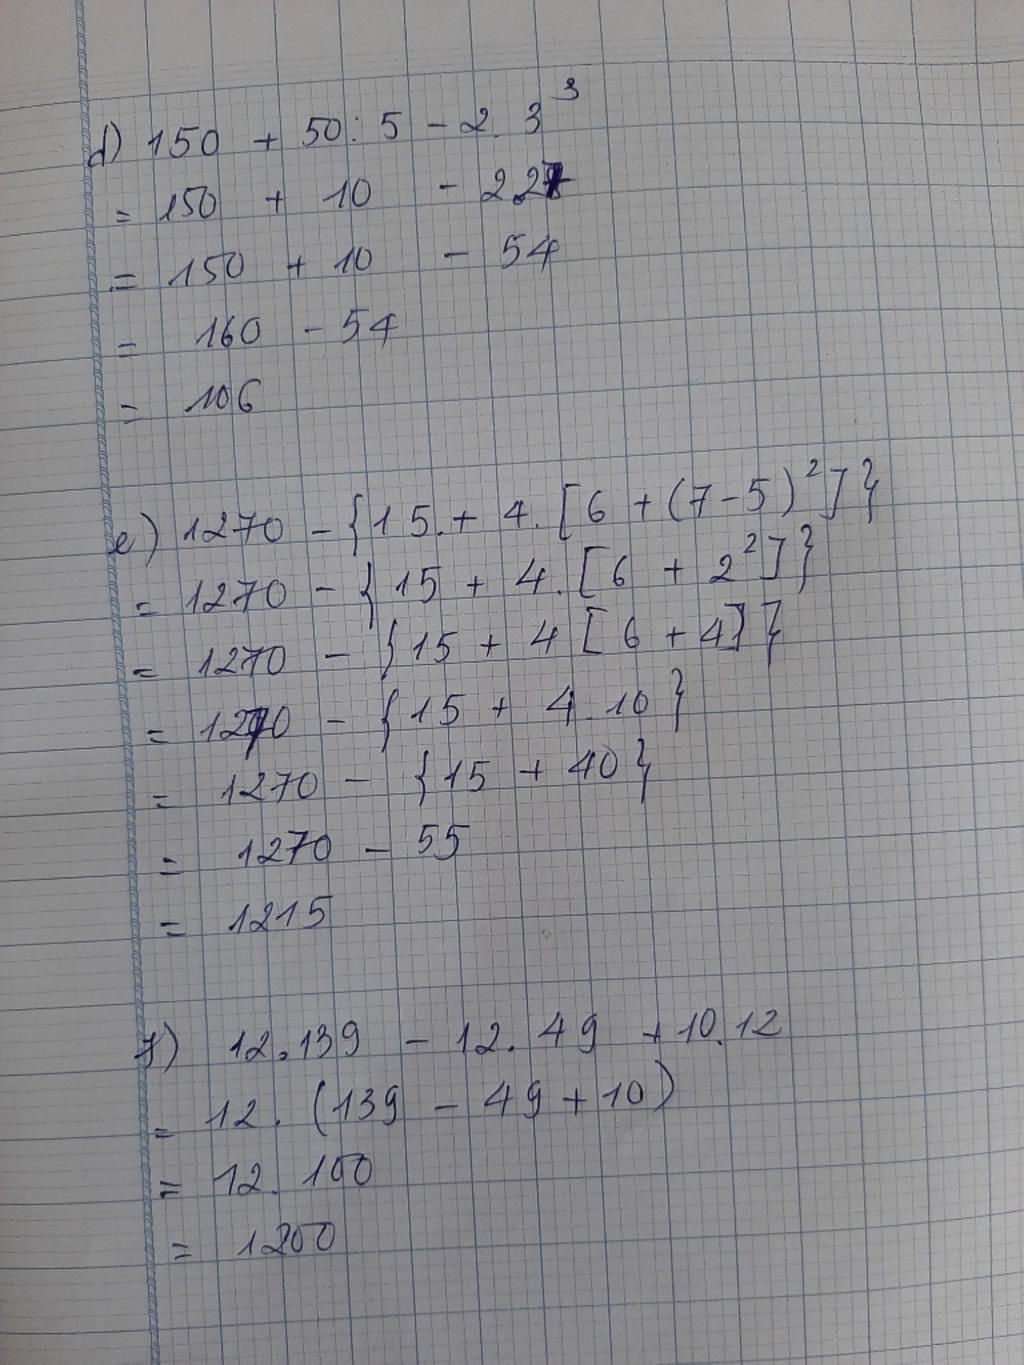 d) 150 + 50 : 5 - 2. 3³
= 150 + 10 - 2.27
= 150 + 10 - 54
= 160 - 54
= 106
e) 1270 - {15. + 4. [6 + (7 - 5)²]}
= 1270 - {15 + 4. [6 + 2²]}
= 1270 - {15 + 4 [6 + 4]}
= 1270 - {15 + 4.10}
= 1270 - {15 + 40}
= 1270 - 55
= 1215
f) 12.139 - 12. 49 + 10.12
= 12. (139 - 49 + 10)
= 12. 100
= 1200